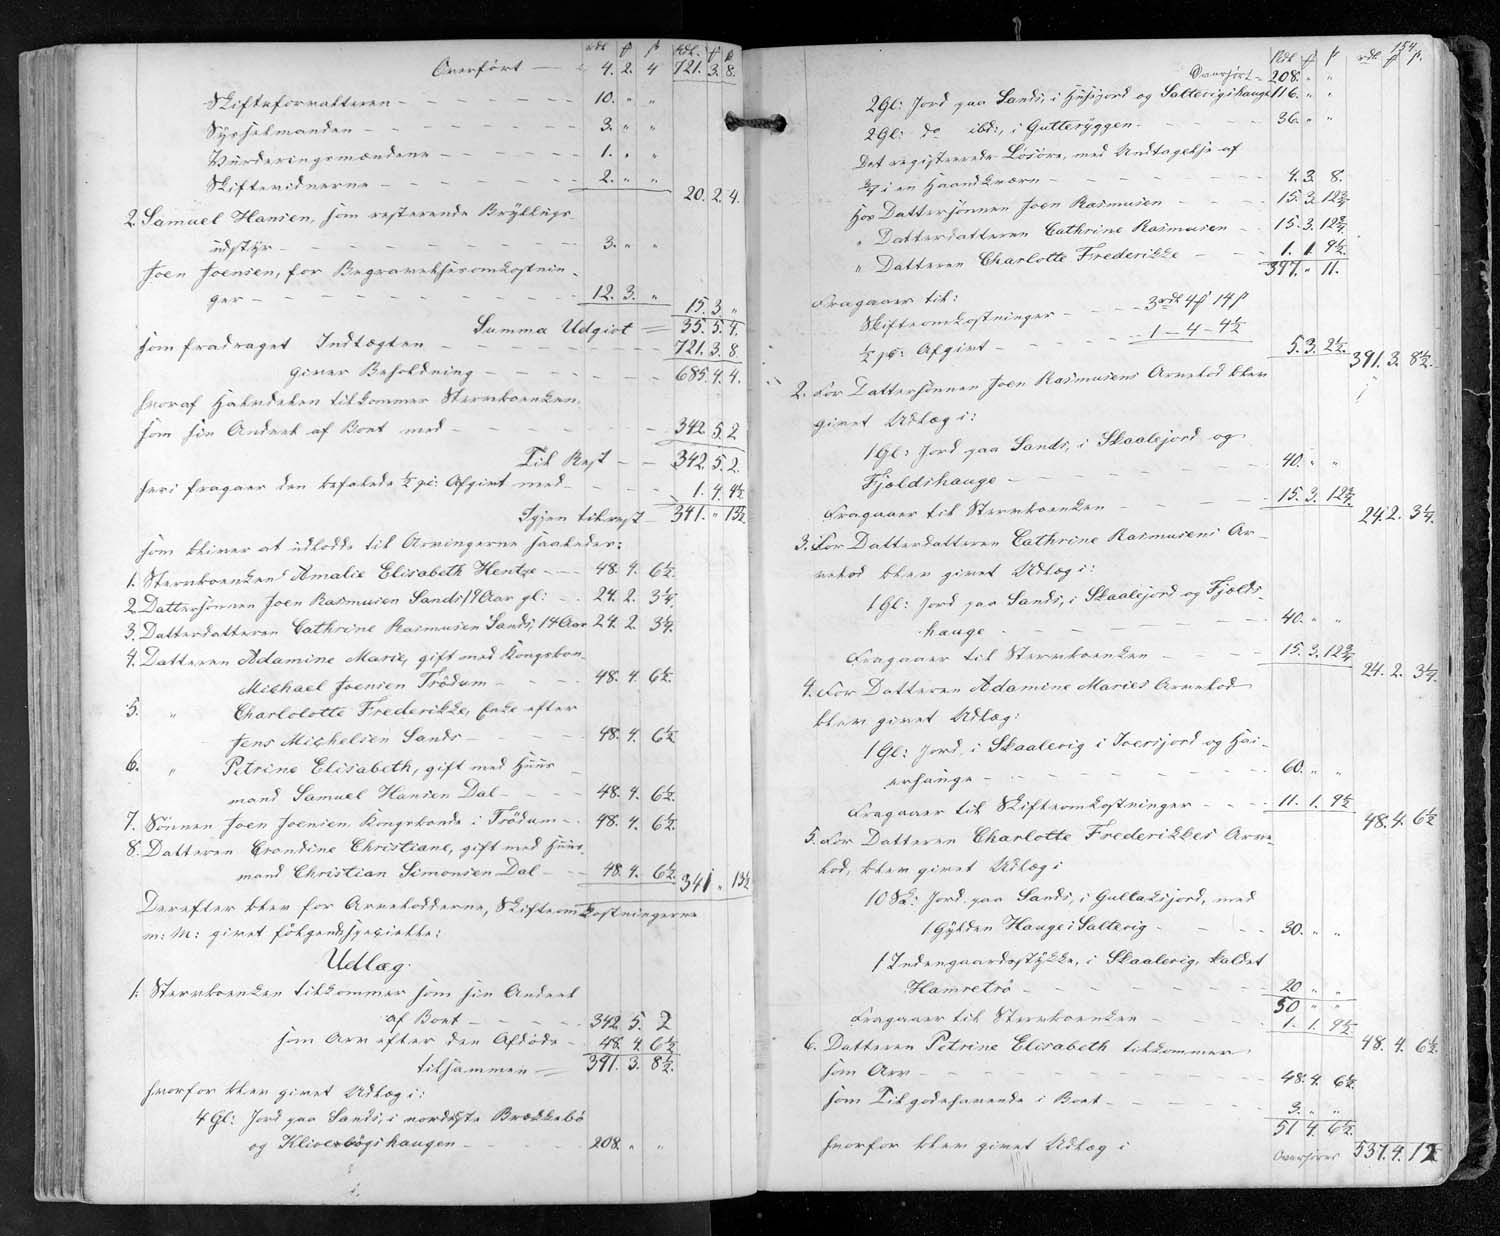 rdl ƒ ß rdl. ƒ ß
Overført — 4. 2. 4 721. 3. 8.
Skifteforvalteren — 10. " "
Sysselmanden — 3. " "
Vurderingsmændene — 1. " "
Skiftevidnerne — 2. " " 20. 2. 4.
2. Samuel Hansen, som resterende Bryllups-
udstyr — 3. " "
Joen Joensen, for Begravelsesomkostnin-
ger — 12. 3. " 15. 3. "
Summa Udgivt = 35. 5. 4.
som fradraget Indtægten — 721. 3. 8.
giver Beholdning — 685. 4. 4.
hvoraf Halvdelen tilkommer Stervboenken
som sin Andeel af Boet med — 342. 5. 2
Til Rest — 342. 5. 2.
heri fragaaer den befalede ½ pc: Afgivt med — 1. 4. 4½
Igjen tilrest — 341. " 13½
som bliver at udlodde til Arvingerne saaledes:
1. Stervboenken Amalie Elisabeth Hentze — 48. 4. 6½.
2. Dattersønnen Joen Rasmusen Sands, 19 Aar gl: — 24. 2. 3¼.
3. Datterdatteren Cathrine Rasmusen Sands, 14 Aar 24. 2. 3¼.
4. Datteren Adamine Marie, gift med Kongsbon-
Michael Joensen Trödum — 48. 4. 6½.
5. " Charlolotte Frederikke, Enke efter
Jens Michelsen Sands — 48. 4. 6½
6. " Petrine Elisabeth, gift med Huus-
mand Samuel Hansen Dal — 48. 4. 6½.
7. Sönnen Joen Joensen, Kongsbonde i Trödum — 48. 4. 6½.
8. Datteren Crondine Christiane, gift med Huus-
mand Christian Simonsen Dal — 48. 4. 6½. 341 " 13½
Derefter blev for Arvelodderne, Skifteomkostningerne
m: M: givet følgende specielle:
Udlæg.
1. Stervboenken tilkommer som sin Andeel
af Boet — 342. 5. 2
som Arv efter den Afdøde — 48. 4. 6½
tilsammen = 391. 3. 8½.
hvorfor blev givet Udlæg i:
4 Gl: Jord paa Sands, i nordiste Brækkebö
og Kliverbögshaugen — 208. " "
154.
Rdl ƒ ß rdl ƒ ß.
Overført — 208. " "
2 Gl: Jord paa Sands, i Husejord og Saltevigshauge 116. " "
2 Gl: do ibd:, i Gutteryggen — 36. " "
Det registrerede Løsøre, med Undtagelse af
½ i en Haandkværn — 4. 3. 8.
Hos Dattersønnen Joen Rasmusen — 15. 3. 12¾
" Datterdatteren Cathrine Rasmusen — 15. 3. 12¾
" Datteren Charlotte Frederikke — 1. 1. 9½.
397. " 11.
Fragaaer til:
Skifteomkostninger — 3 rdl 4 ƒ 14 ß
½ pc: Afgivt — 1 – 4 – 4½ 5. 3. 2½. 391. 3. 8½.
2. For Dattersønnen Joen Rasmusens Arvelod blev
givet Udlæg i:
1 Gl: Jord paa Sands, i Skaalejord og
Fjeldshauge — 40. " "
Fragaaer til Stervboenken — 15. 3. 12¾. 24. 2. 3¼.
3. For Datterdatteren Cathrine Rasmusens Ar-
velod blev givet Udlæg i:
1 Gl: Jord paa Sands, i Skaalejord og Fjelds-
hauge — 40. " "
Fragaaer til Stervboenken — 15. 3. 12¾ 24. 2. 3¼.
4. For Datteren Adamine Maries Arvelod
blev givet Udlæg:
1 Gl: Jord i Skaalevig i Iversjord og Hei-
erhauge — 60. " "
Fragaaer til Skifteomkostninger — 11. 1. 9½ 48. 4. 6½
5. For Datteren Charlotte Frederikkes Arve-
lod, blev givet Udlæg i
10 Sk: Jord paa Sands, i Gullaksjord, med
1 Gylden Hauge i Saltevig — 30. " "
1 Indengaardsstykke, i Skaalevig, kaldet
Hamretrö — 20 " "
50 " "
Fragaaer til Stervboenken — 1. 1. 9½ 48. 4. 6½.
6. Datteren Petrine Elisabeth tilkommer
som Arv — 48. 4. 6½.
som Tilgodehavende i Boet — 3. " "
51 4. 6½.
hvorfor blev givet Udlæg i
Overføres 537. 4. 12